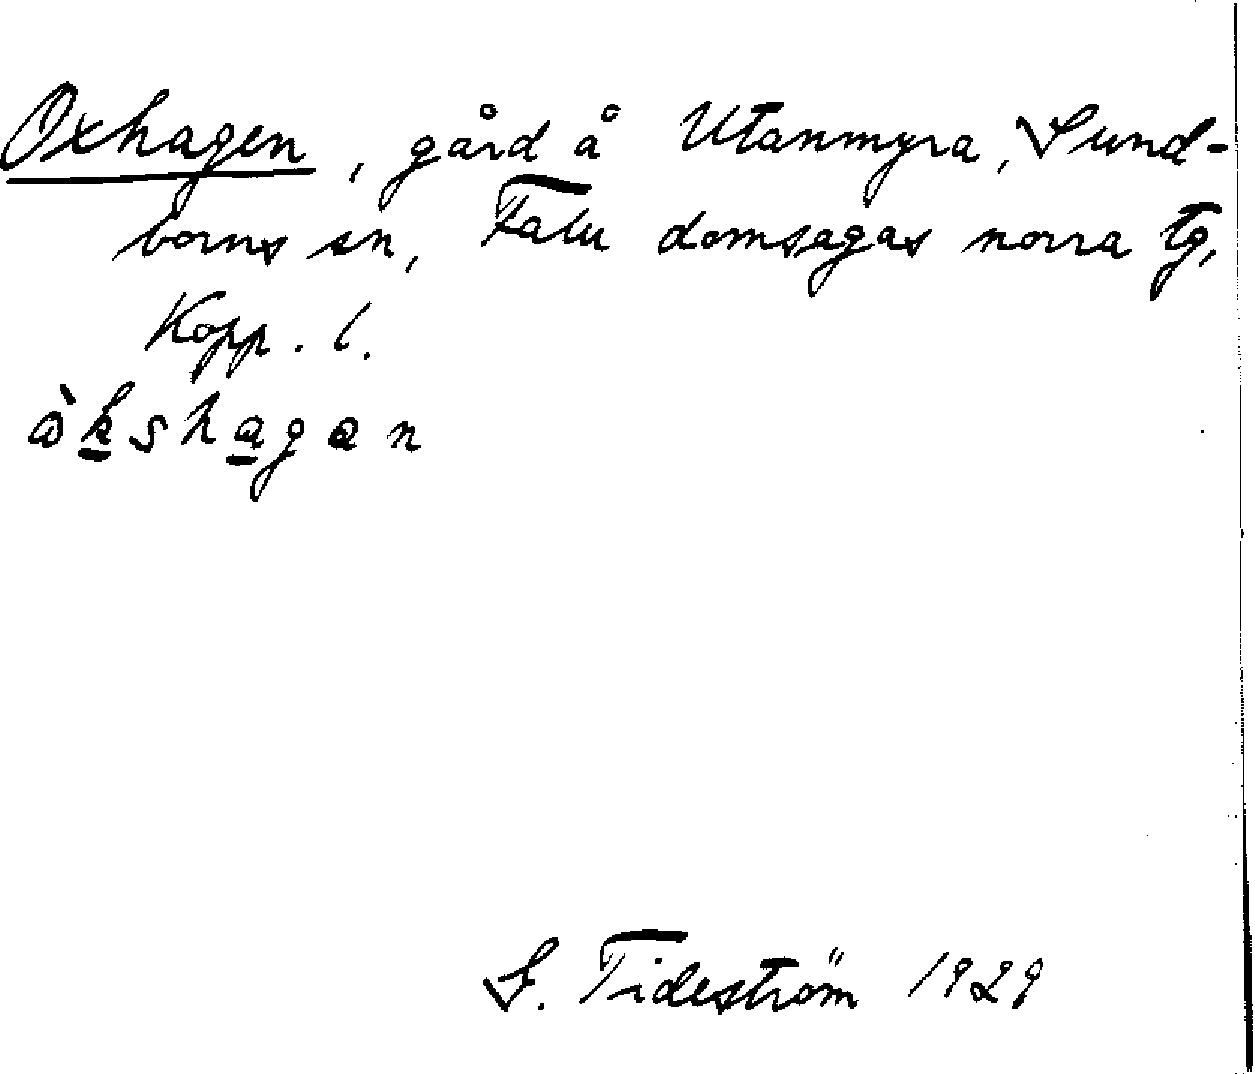 Oxhagen, gård å Utanmyra, Sund-
borns sn, Falu domsagas norra tg,
Kopp. l.
òkshagan
S. Tideström 1929